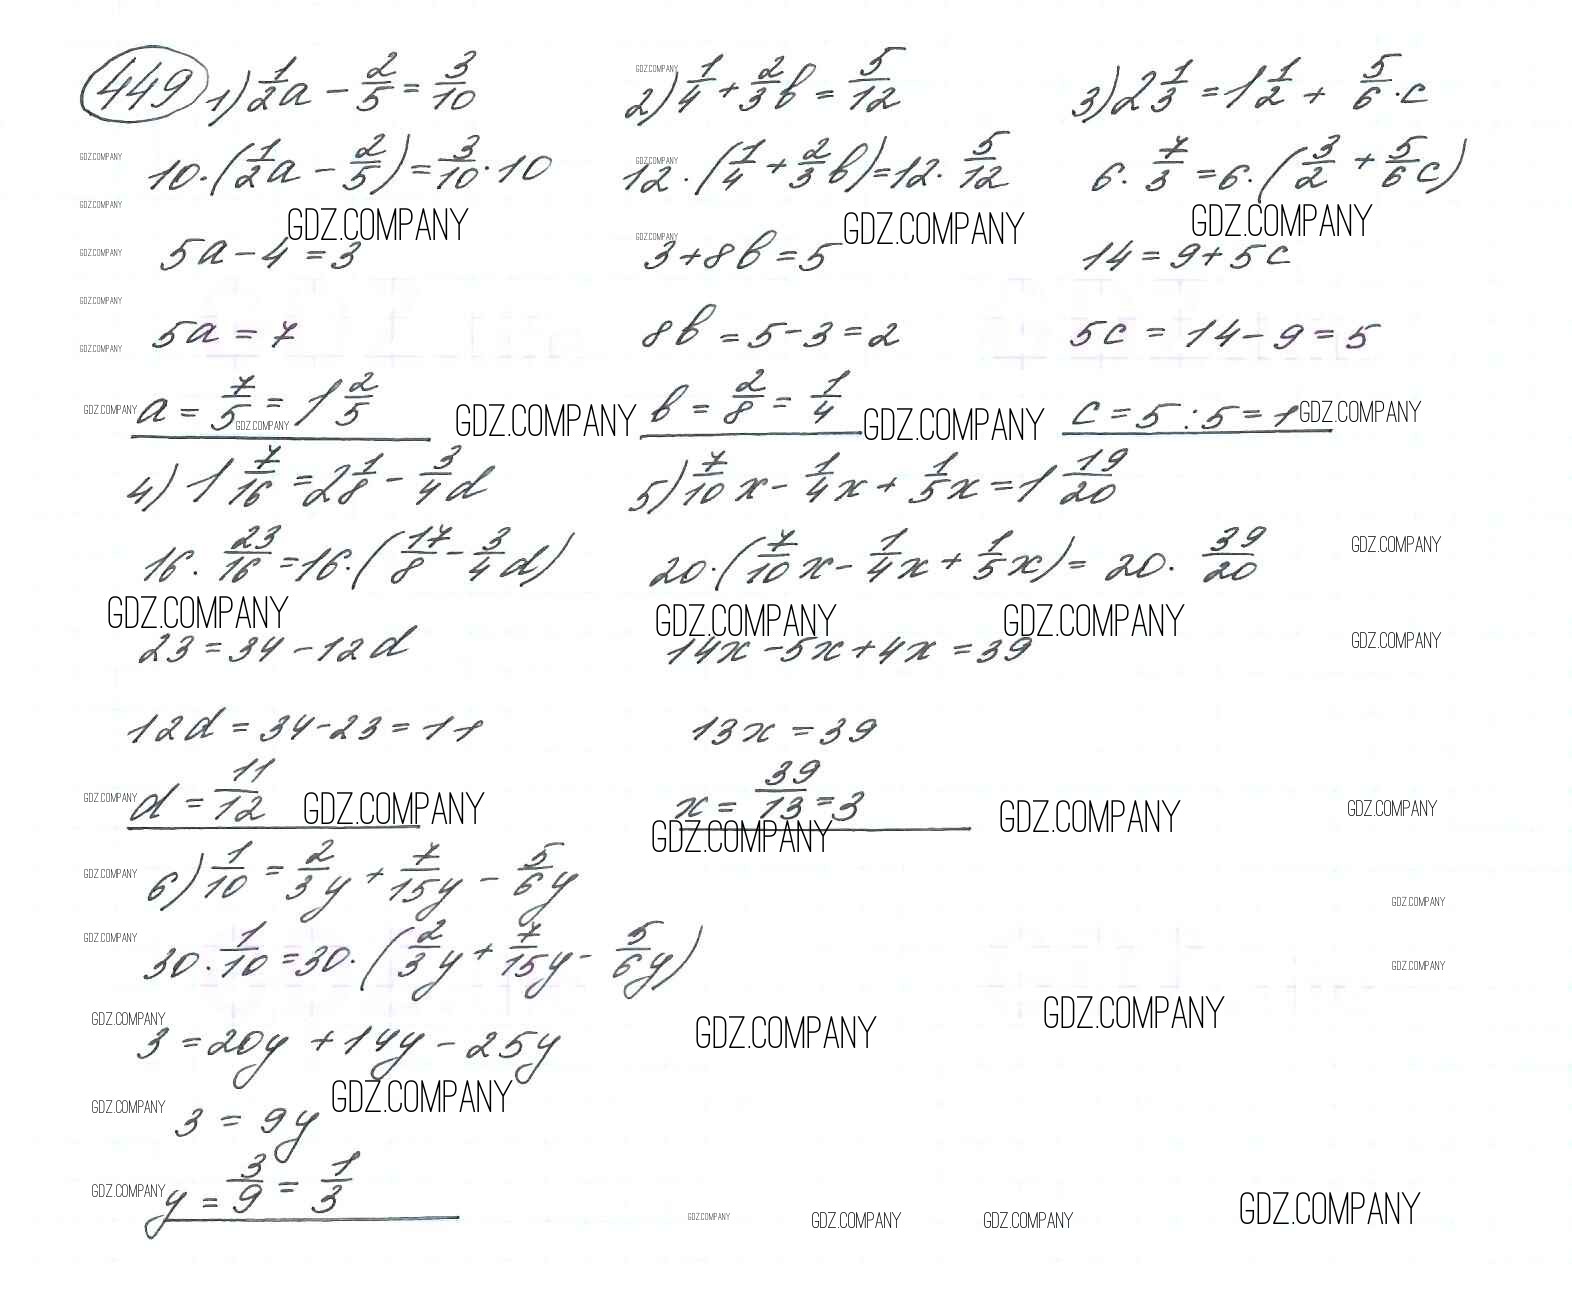 449 1) 1/2 a - 2/5 = 3/10
10·(1/2 a - 2/5) = 3/10·10
5a - 4 = 3
5a = 7
a = 7/5 = 1 2/5
2) 1/4 + 2/3 b = 5/12
12·(1/4 + 2/3 b) = 12·5/12
3 + 8b = 5
8b = 5 - 3 = 2
b = 2/8 = 1/4
3) 2 1/3 = 1 1/2 + 5/6·c
6·7/3 = 6·(3/2 + 5/6 c)
14 = 9 + 5c
5c = 14 - 9 = 5
c = 5 : 5 = 1
4) 1 7/16 = 2 1/8 - 3/4 d
16·23/16 = 16·(17/8 - 3/4 d)
23 = 34 - 12d
12d = 34 - 23 = 11
d = 11/12
5) 7/10 x - 1/4 x + 1/5 x = 1 19/20
20·(7/10 x - 1/4 x + 1/5 x) = 20·39/20
14x - 5x + 4x = 39
13x = 39
x = 39/13 = 3
6) 1/10 = 2/3 y + 7/15 y - 5/6 y
30·1/10 = 30·(2/3 y + 7/15 y - 5/6 y)
3 = 20y + 14y - 25y
3 = 9y
y = 3/9 = 1/3
GDZ.COMPANY